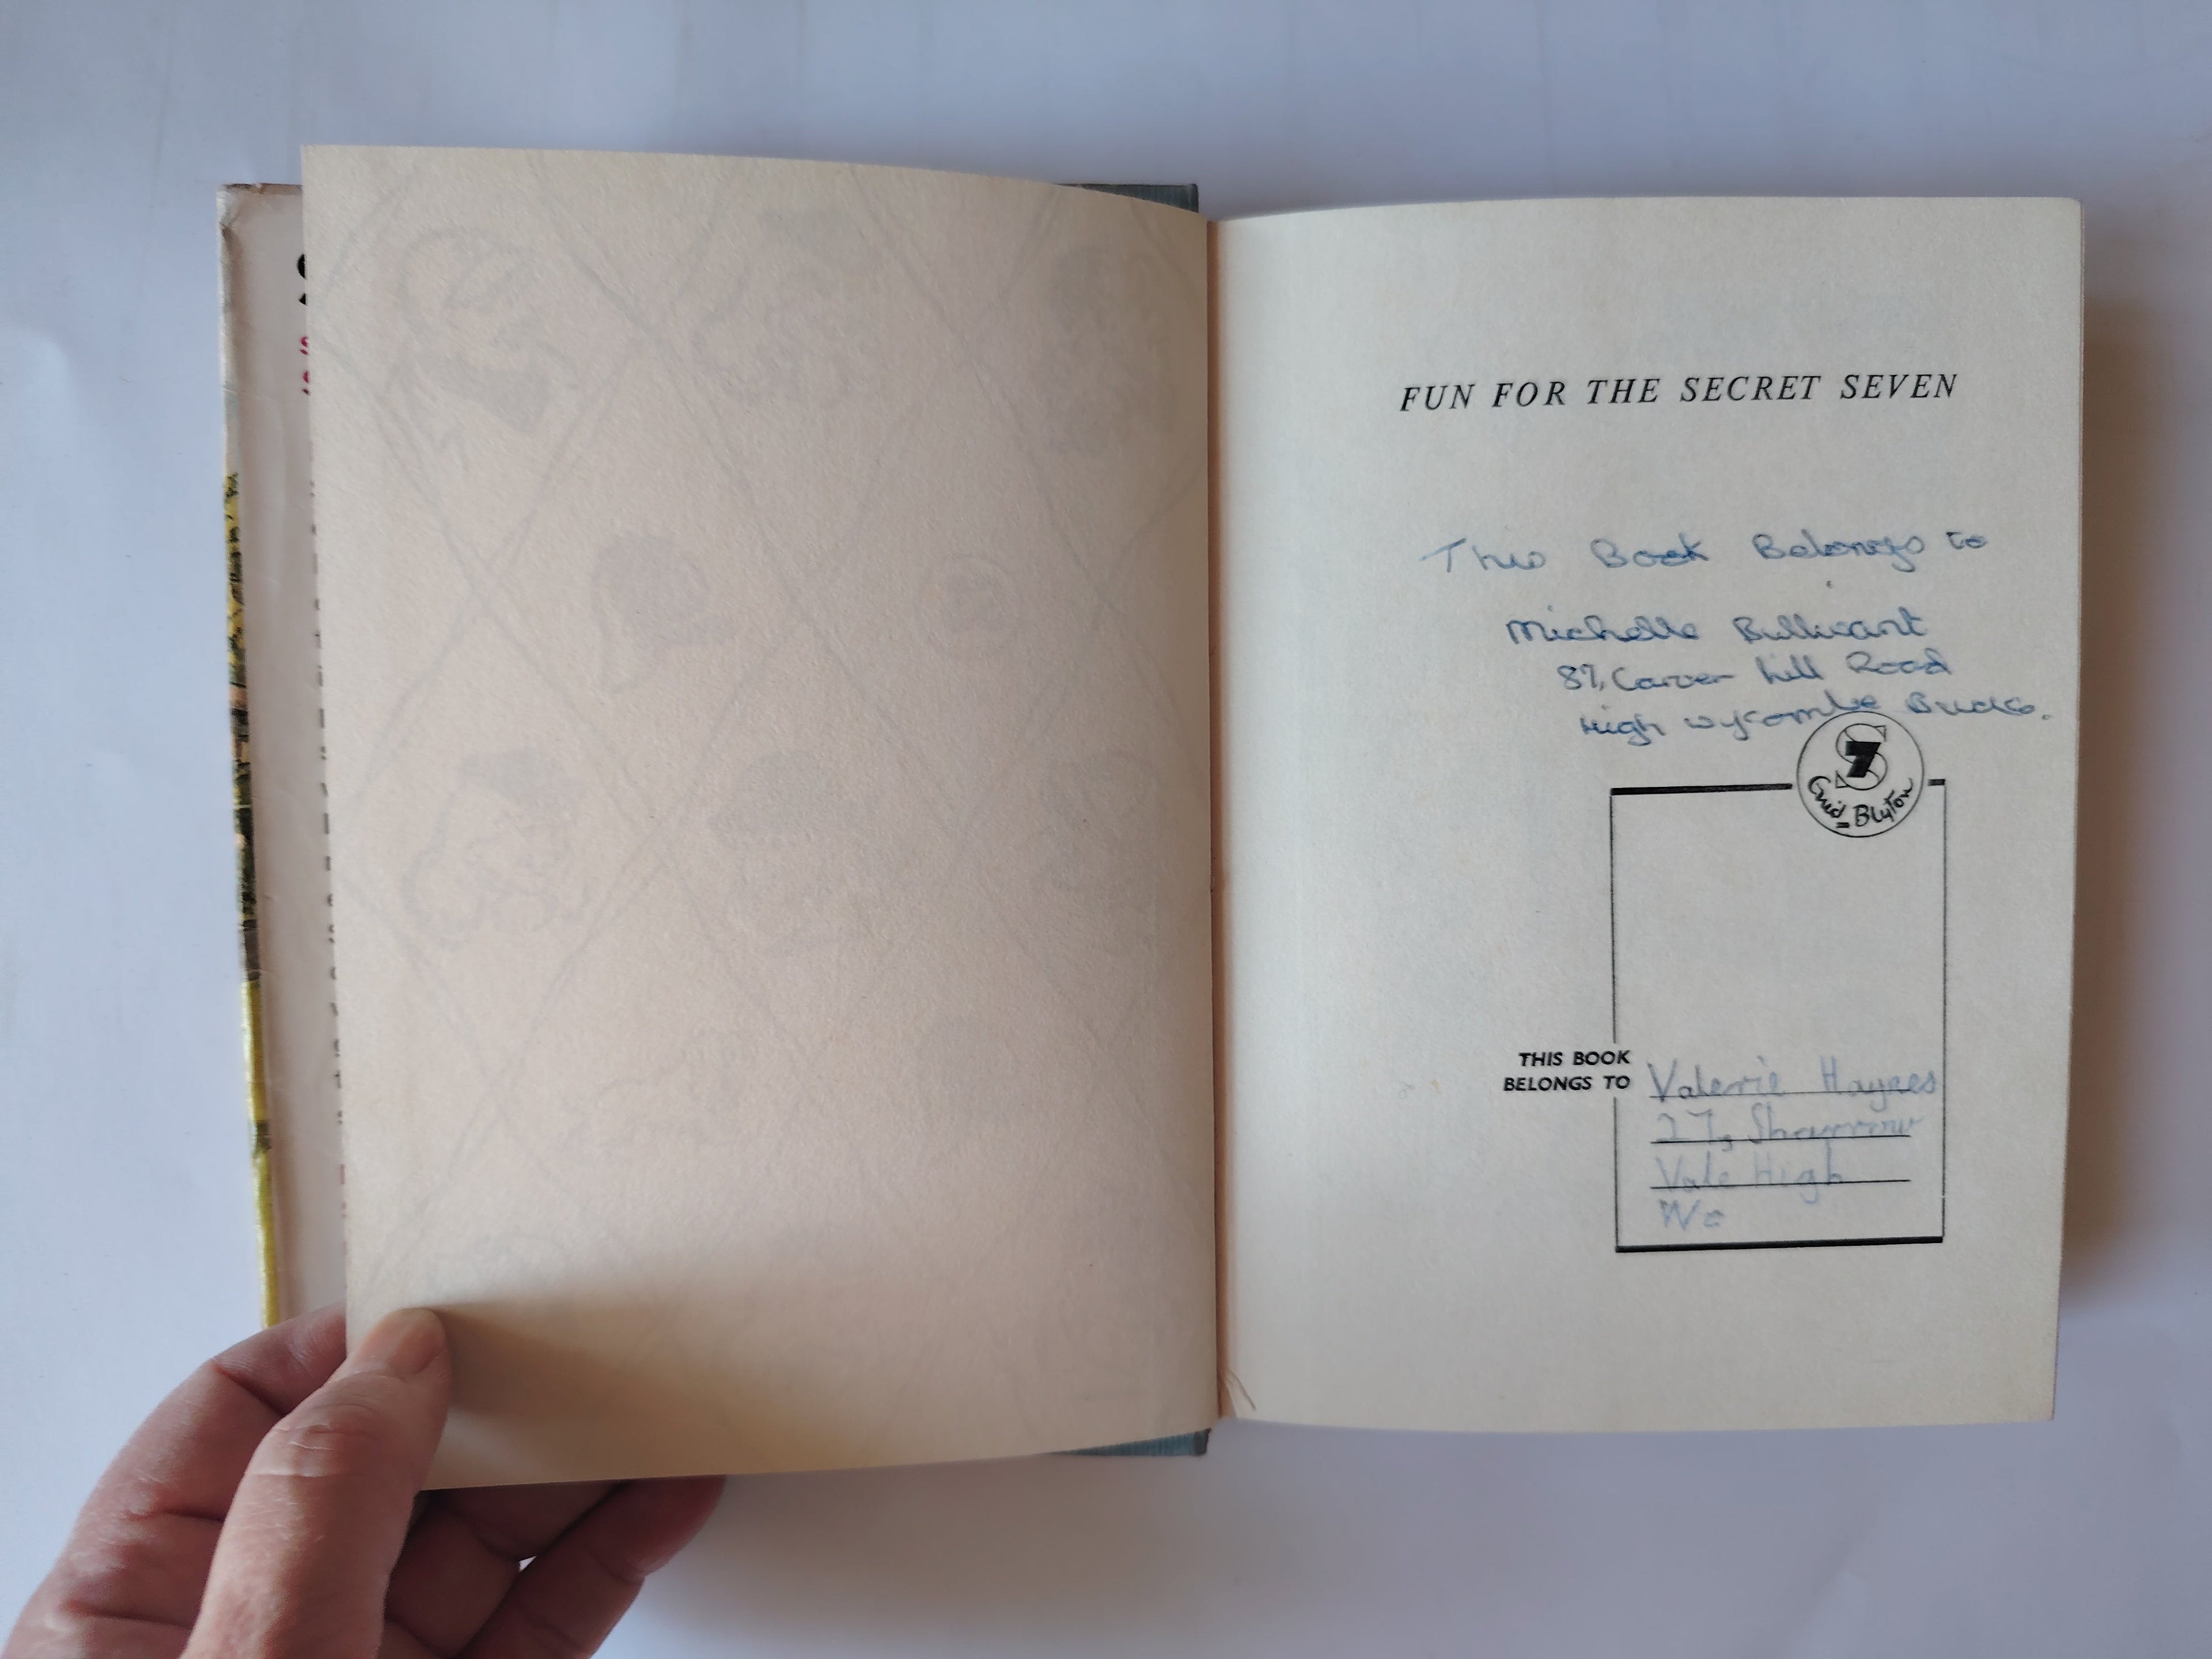 FUN FOR THE SECRET SEVEN
This Book Belongs to
Michelle Bullivant
87, Carver hill Road
High Wycombe Bucks.
S7
Enid Blyton
THIS BOOK
BELONGS TO
Valerie Haynes
27, Sharrow
Vale High
Wc